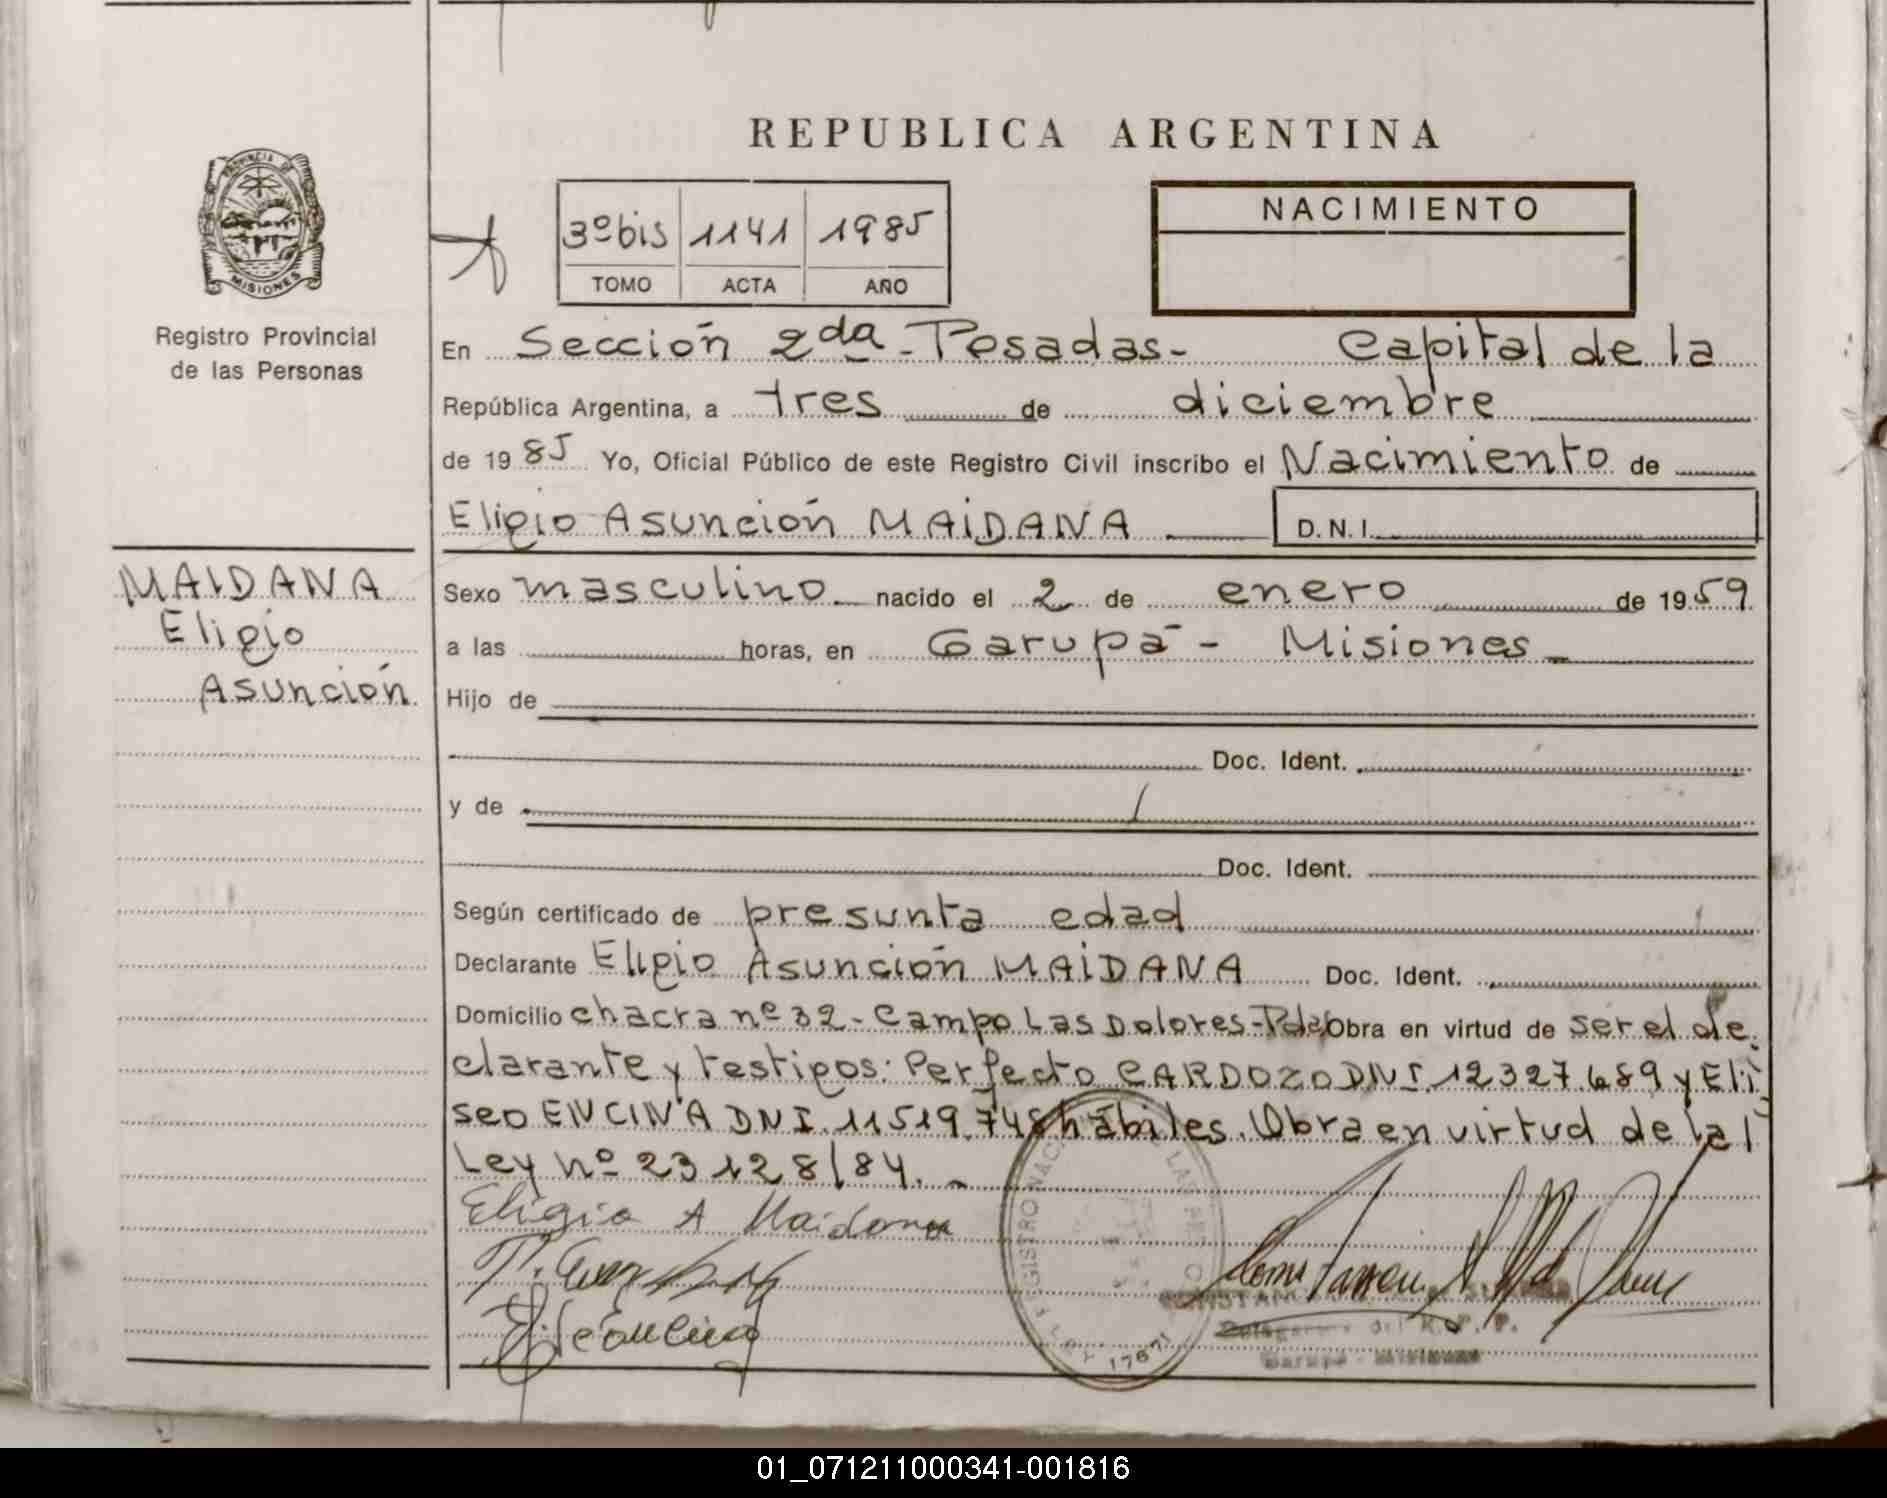 REPUBLICA ARGENTINA
PROVINCIA DE
MISIONES
Registro Provincial
de las Personas
3º bis 1141 1985
TOMO ACTA AÑO
NACIMIENTO
En Sección 2da - Posadas - Capital de la
República Argentina, a tres de diciembre
de 1985 Yo, Oficial Público de este Registro Civil inscribo el Nacimiento de
Eligio Asunción MAIDANA D.N.I.
MAIDANA
Eligio
Asunción
Sexo masculino nacido el 2 de enero de 1959
a las horas, en Garupá - Misiones
Hijo de
Doc. Ident.
y de
Doc. Ident.
Según certificado de presunta edad
Declarante Eligio Asunción MAIDANA Doc. Ident.
Domicilio chacra nº 32 - Campo Las Dolores - Pdas Obra en virtud de ser el de
clarante y testigos: Perfecto CARDOZO DNI. 12327.689 y Eli
seo ENCINA DNI. 11519.748 hábiles. Obra en virtud de la
Ley nº 23128/84.
Eligio A Maidana
REGISTRO NAC LAS
1767
Delegaci del R. P. P.
Garupá - Misiones
01_071211000341-001816